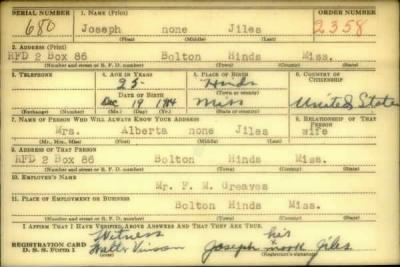 SERIAL NUMBER 1. NAME (Print) ORDER NUMBER
680 Joseph none Jiles 2358
(First) (Middle) (Last)
2. ADDRESS (Print)
RFD 2 Box 86 Bolton Hinds Miss.
(Number and street or R. F. D. number) (Town) (County) (State)
3. TELEPHONE 4. AGE IN YEARS 5. PLACE OF BIRTH 6. COUNTRY OF CITIZENSHIP
25 Hinds
DATE OF BIRTH (Town or county)
Dec 19 Miss United States
(Exchange) (Number) (Mo.) (Day) (Yr.) (State or country)
7. NAME OF PERSON WHO WILL ALWAYS KNOW YOUR ADDRESS 8. RELATIONSHIP OF THAT PERSON
Mrs. Alberta none Jiles wife
(Mr., Mrs., Miss) (First) (Middle) (Last)
9. ADDRESS OF THAT PERSON
RFD 2 Box 86 Bolton Hinds Miss.
(Number and street or R. F. D. number) (Town) (County) (State)
10. EMPLOYER'S NAME
Mr. F. M. Greaves
11. PLACE OF EMPLOYMENT OR BUSINESS
Bolton Hinds Miss.
(Number and street or R. F. D. number) (Town) (County) (State)
I AFFIRM THAT I HAVE VERIFIED ABOVE ANSWERS AND THAT THEY ARE TRUE.
Witness his
REGISTRATION CARD Walter Vinson Joseph x mark Jiles
D. S. S. Form 1 (Registrant's signature)